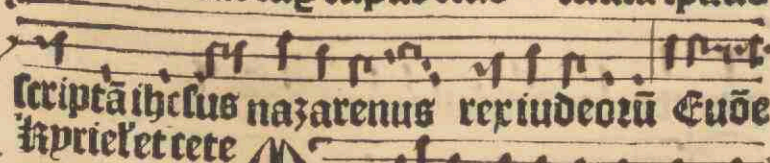 scriptā ihesus nazarenus rex iudeoꝝū Euōe
Kyriel̕ et cete